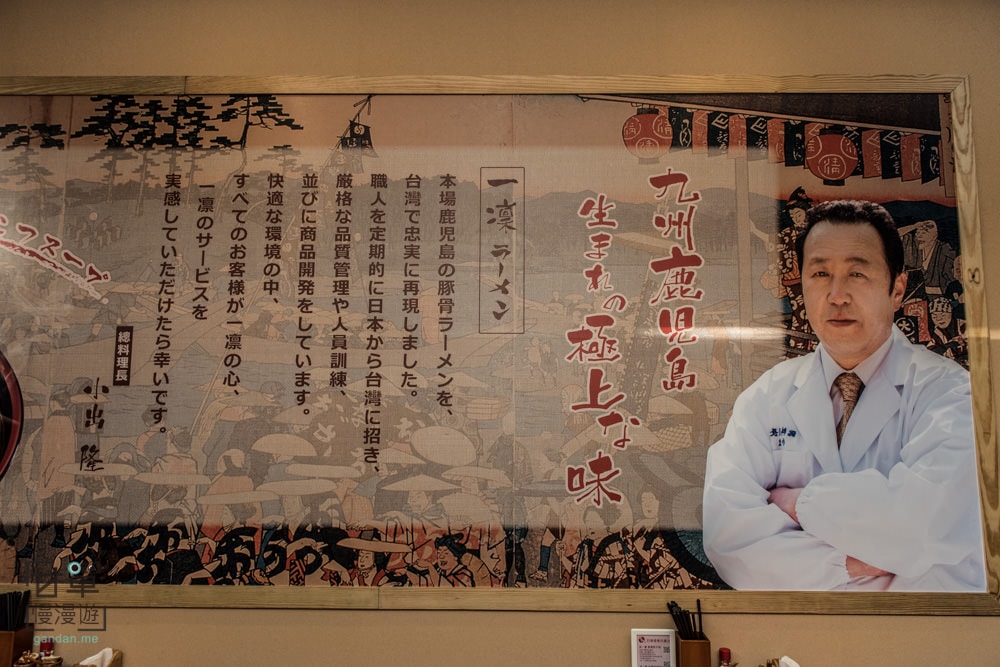 九州鹿児島
生まれの極上な味
一凛ラーメン
本場鹿児島の豚骨ラーメンを、
台湾で忠実に再現しました。
職人を定期的に日本から台湾に招き、
厳格な品質管理や人員訓練、
並びに商品開発をしています。
快適な環境の中、
すべてのお客様が一凛の心、
一凛のサービスを
実感していただけたら幸いです。
総料理長
小出 隆
慢漫遊
gandan.me